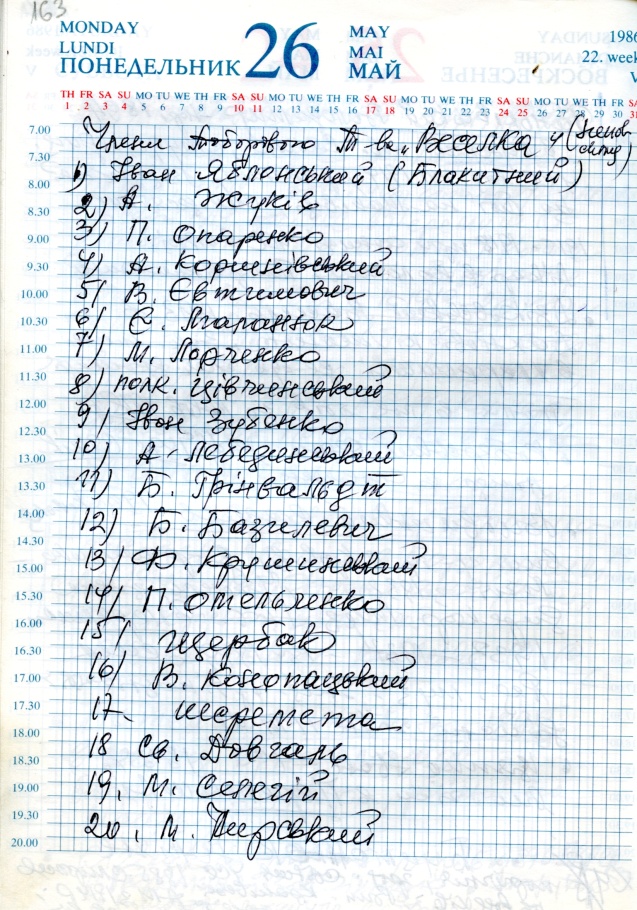 163
MONDAY
LUNDI
ПОНЕДЕЛЬНИК
26
MAY
MAI
МАЙ
1986
22. week
V
TH FR SA SU MO TU WE TH FR SA SU MO TU WE TH FR SA SU MO TU WE TH FR SA SU MO TU WE TH FR SA
1 2 3 4 5 6 7 8 9 10 11 12 13 14 15 16 17 18 19 20 21 22 23 24 25 26 27 28 29 30 31
7.00 Члени Таборового Т-ва „Веселка"
7.30 1) Іван Яблонський (Блакитний)
8.00
8.30 2) А. Жуків
9.00 3) П. Опаренко
9.30 4) А. Коршнівський
10.00 5/ В. Євтимович
10.30 6/ Є.
11.00 7) М.
11.30 8) полк.
12.00
12.30 9/ Іван Зубенко
13.00 10) А. Лебединський
13.30 11) Б. Грінвальдт
14.00
14.30 12) Б. Базилевич
15.00 13/ Ф. Крушинський
15.30 14/ П. Отельченко
16.00
16.30 15/ Щербак
17.00 16/ В. Конопацький
17.30 17. Шеремета
18.00
18.30 18 Св. Довгаль
19.00 19. М. Селегій
19.30
20.00 20. М.